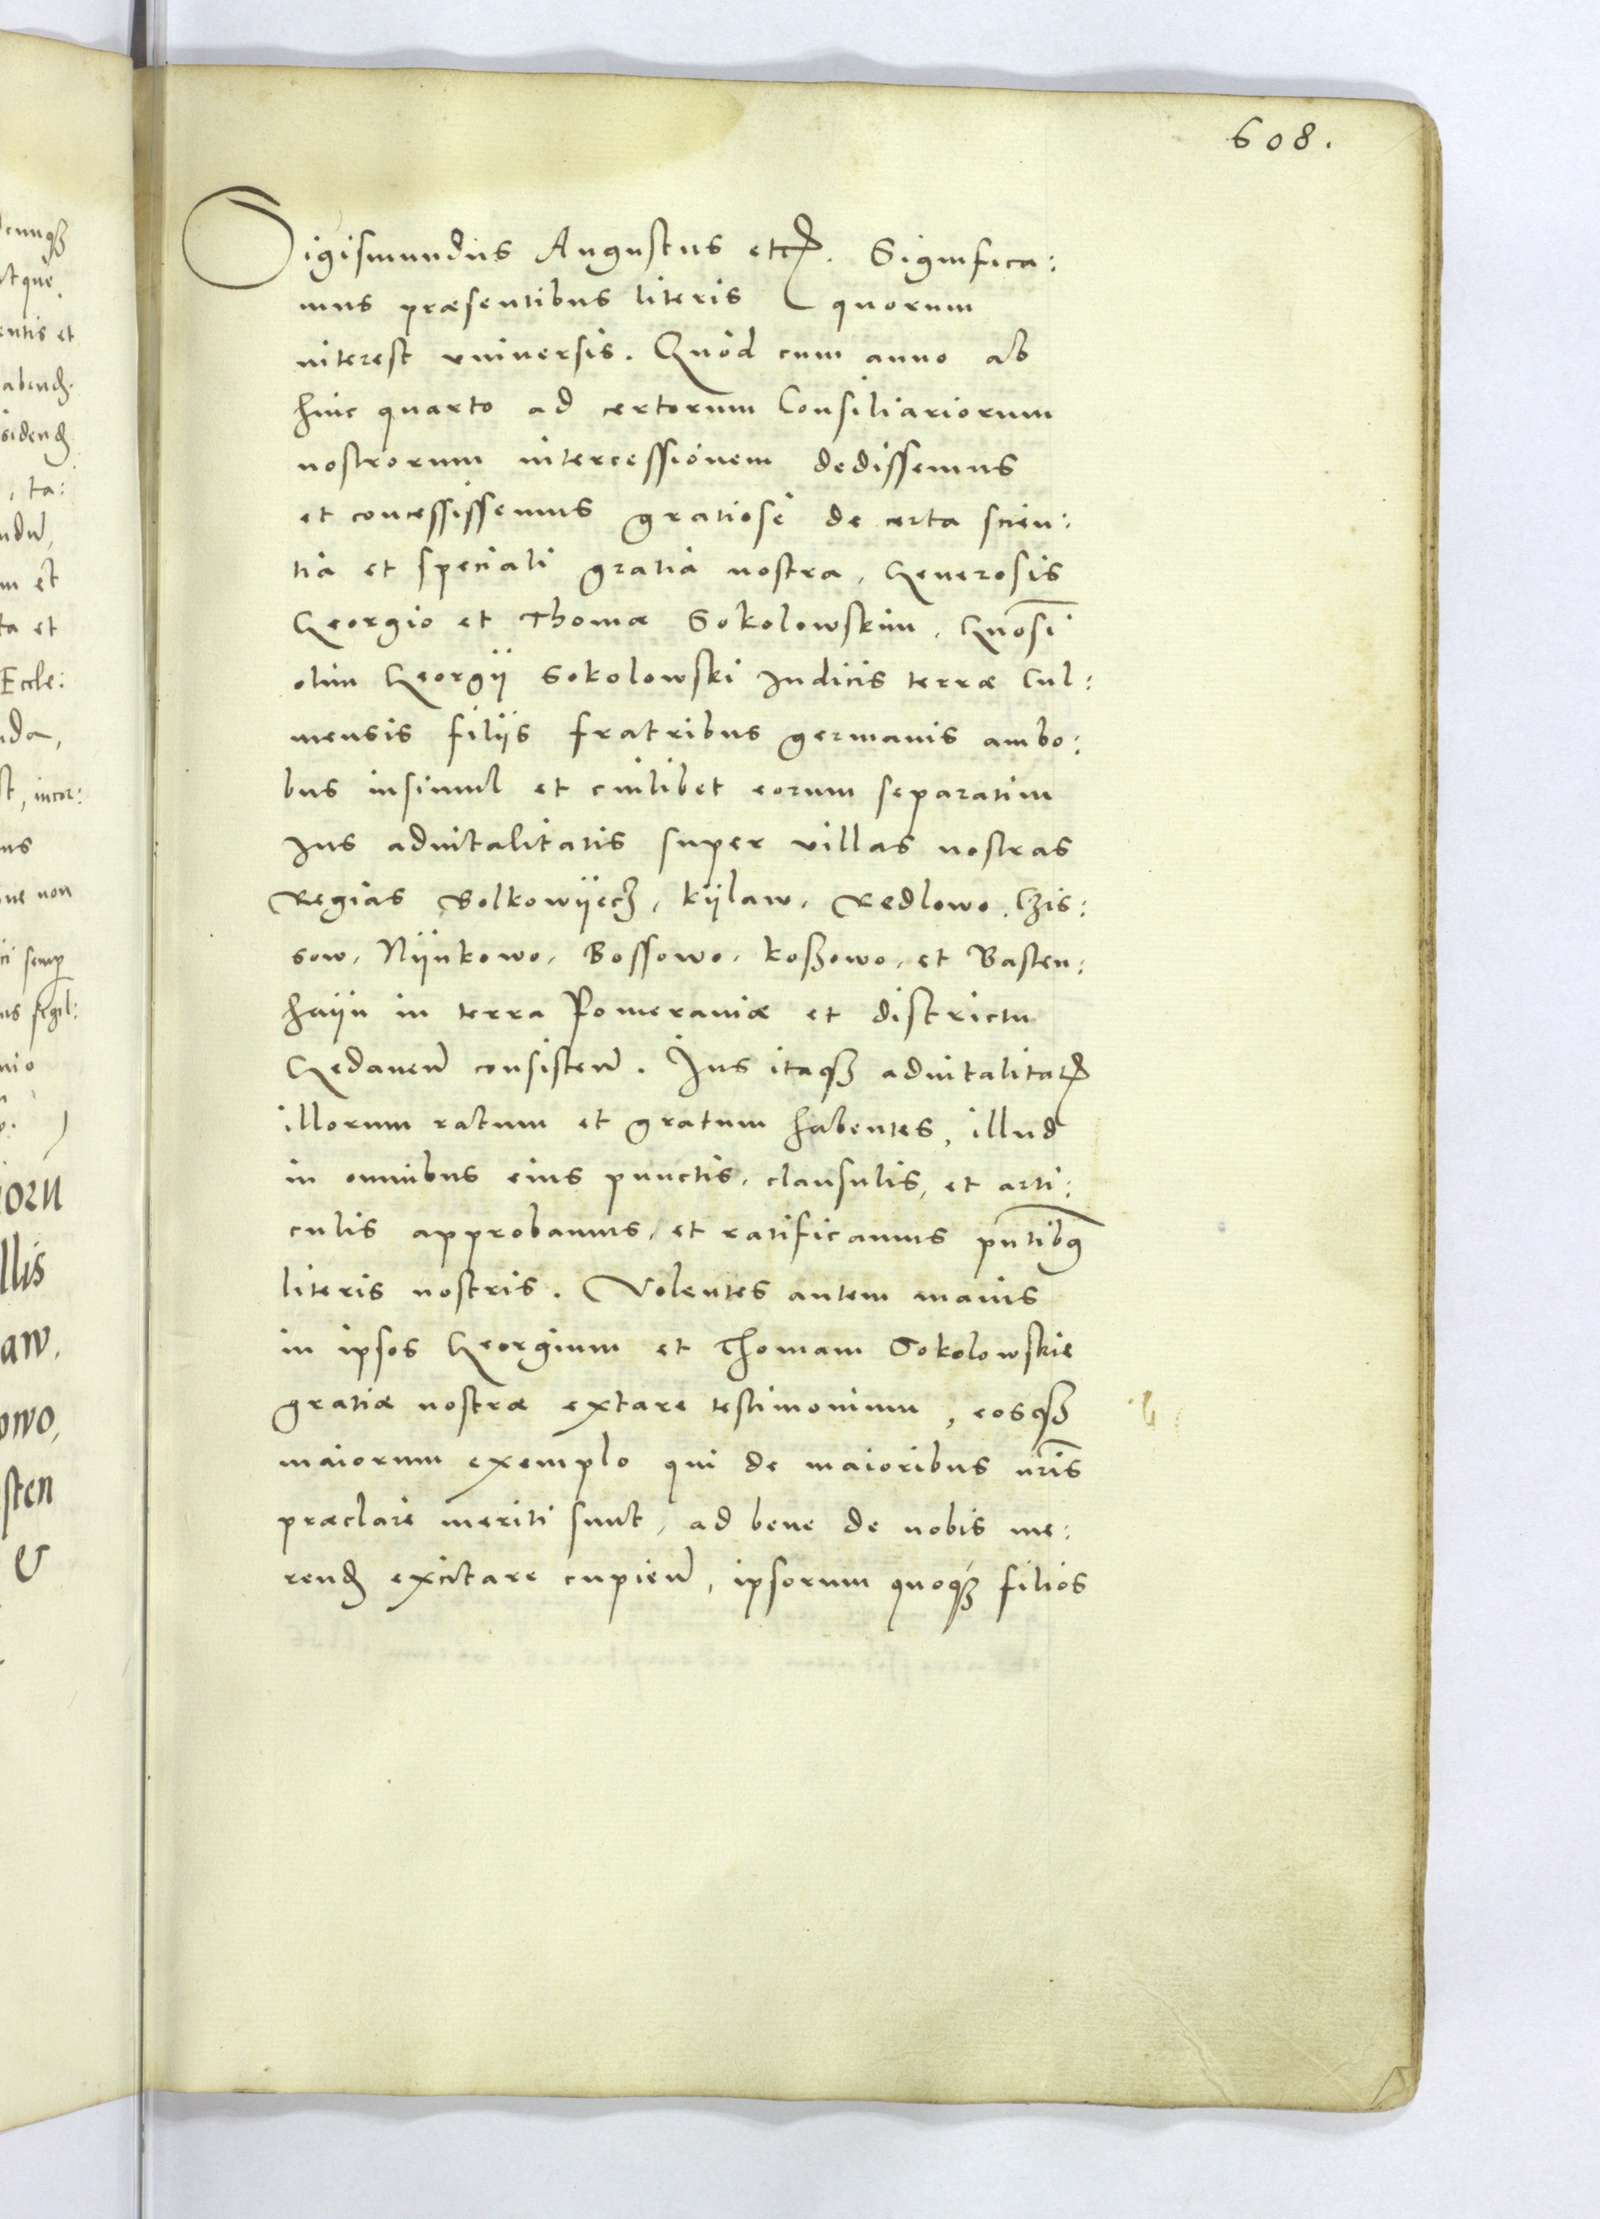 608.
Sigismundus Augustus etc. Significa:
mus præsentibus literis quorum
interest vniuersis. Quòd cum anno ab
hinc quarto ad certorum Consiliariorum
nostrorum intercessionem dedissemus
et concessissemus gratiosè de certa scien:
tia et speciali gratia nostra, Generosis
Georgio et Thomæ Sokolowskim, Gnosi
olim Georgij Sokolowski Iudicis terræ Cul:
mensis filijs fratribus germanis ambo:
bus insimul et cuilibet eorum separatim
Ius aduitalitatis super villas nostras
Regias Bolkowÿecz, Kÿlaw, Redlowo, Czis:
sow, Nÿnkowo, Bossowo, Koszowo, et Basten:
haÿn in terra Pomeraniæ et districtu
Gedanen consisten. Ius itaq3 aduitalitat
illorum ratum et gratum habentes, illud
in omnibus eius punctis, clausulis, et arti:
culis approbamus, et ratificamus pntibq
literis nostris. Volentes autem maius
in ipsos Georgium et Thomam Sokolowskie
gratiæ nostræ extare testimonium, eosq3
maiorum exemplo qui de maioribus nris
præclarè meriti sunt, ad bene de nobis me:
rend excitare cupien, ipsorum quoq3 filios